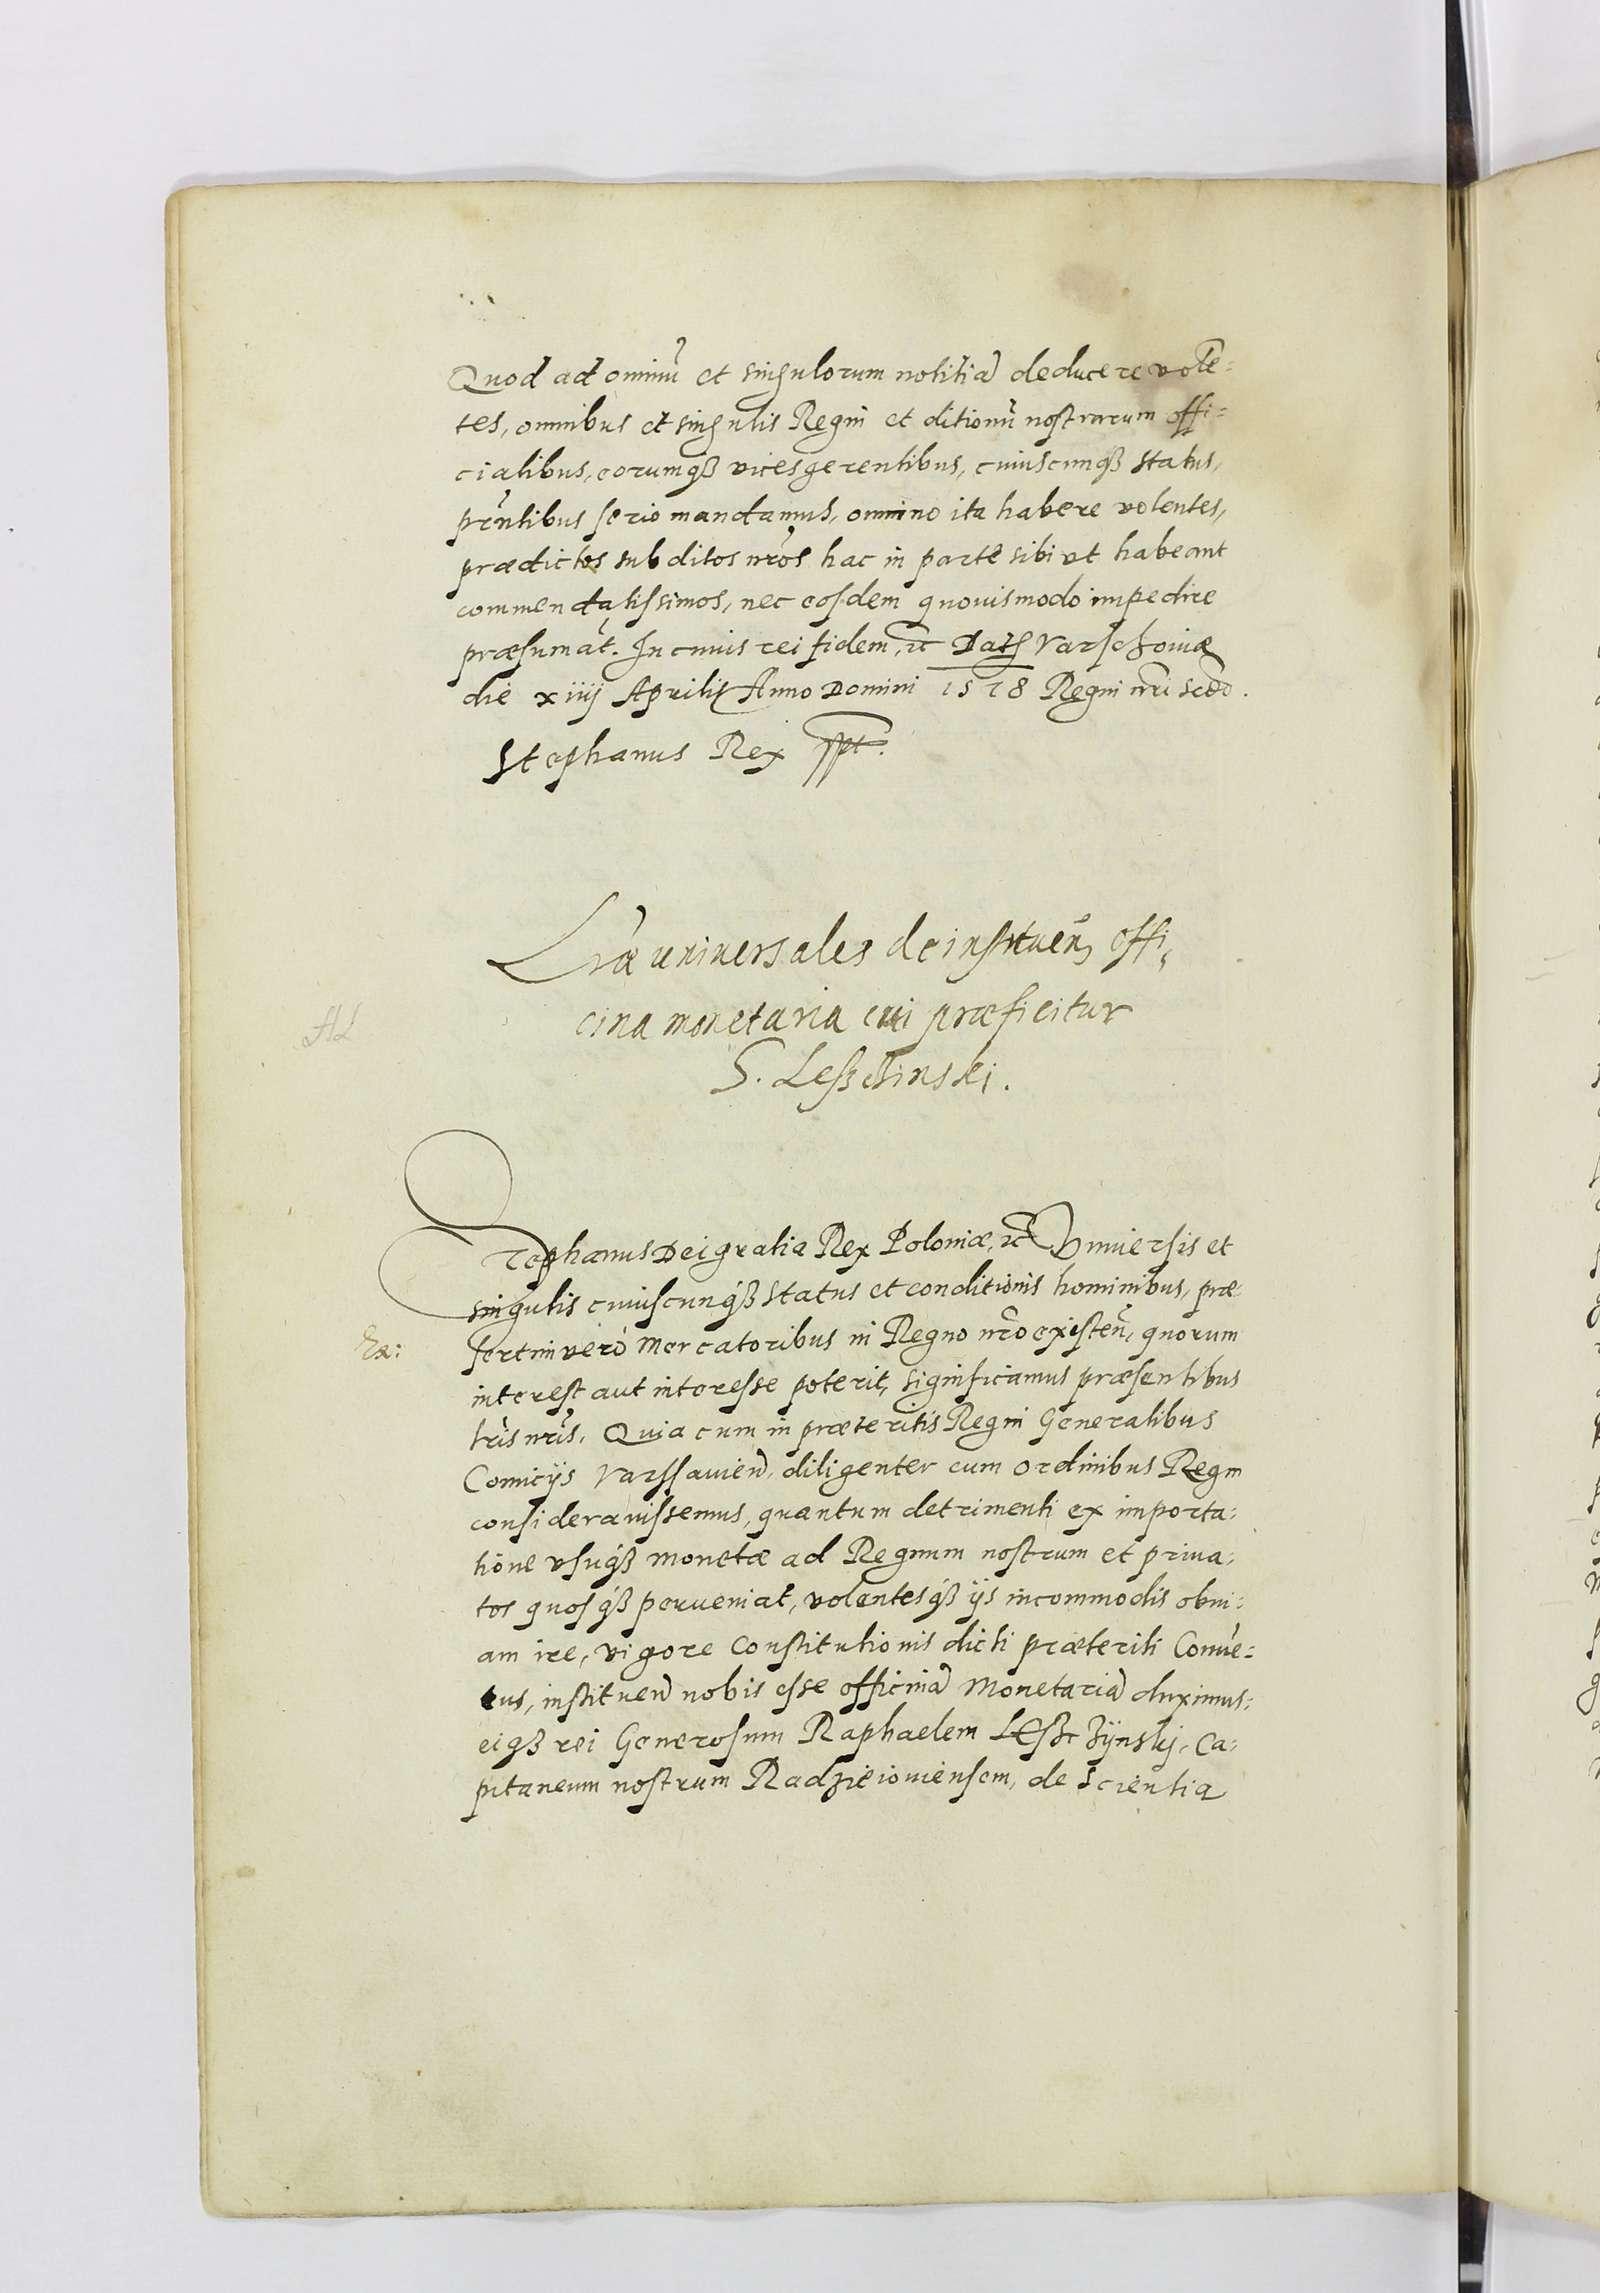 Quod ad omniũ et singulorum notitiã deducere volẽ=
tes, omnibus et singulis Regni et ditionũ nostrarum offi=
cialibus, eorumqß vicesgerentibus, cuiuscunqß status,
pñtibus serio mandamus, omnino ita habere volentes,
prædictos subditos nr̃os hac in parte sibi vt habeant
commendatissimos, nec eosdem quouismodo impedire
præsumãt. In cuius rei fidem, ꝛc Datʒ Varschouiæ
die xiiij Aprilis Anno Domini 1578 Regni nr̃i scdõ.
Stephanus Rex sspt.
Lr̃æ uniuersales de instituẽn offi,
cina monetaria cui præficitur
S. Leßczinski.
AL
Stephanus Dei gratia Rex Poloniæ, ꝛc Vniuersis et
singulis cuiuscunqß status et conditionis hominibus, præ
Ex:
sertim verò Mercatoribus in Regno nr̃o existeñ, quorum
interest aut interesse poterit, significamus præsentibus
lr̃is nr̃is. Quia cum in præteritis Regni Generalibus
Comicijs Varssauieñ, diligenter cum ordinibus Regni
considerauissemus, quantum detrimenti ex importa:
tione vsuqß monetæ ad Regnum nostrum et priua:
tos quosqß perueniat, volentesqß ijs incommodis obui:
am ire, vigore Constitutionis dicti præteriti Conuẽ=
tus, institueñ nobis esse officinã Monetariã duximus:
eiqß rei Generosum Raphaelem Leßczÿnskj, Ca:
pitaneum nostrum Radzieiouiensem, de scientia